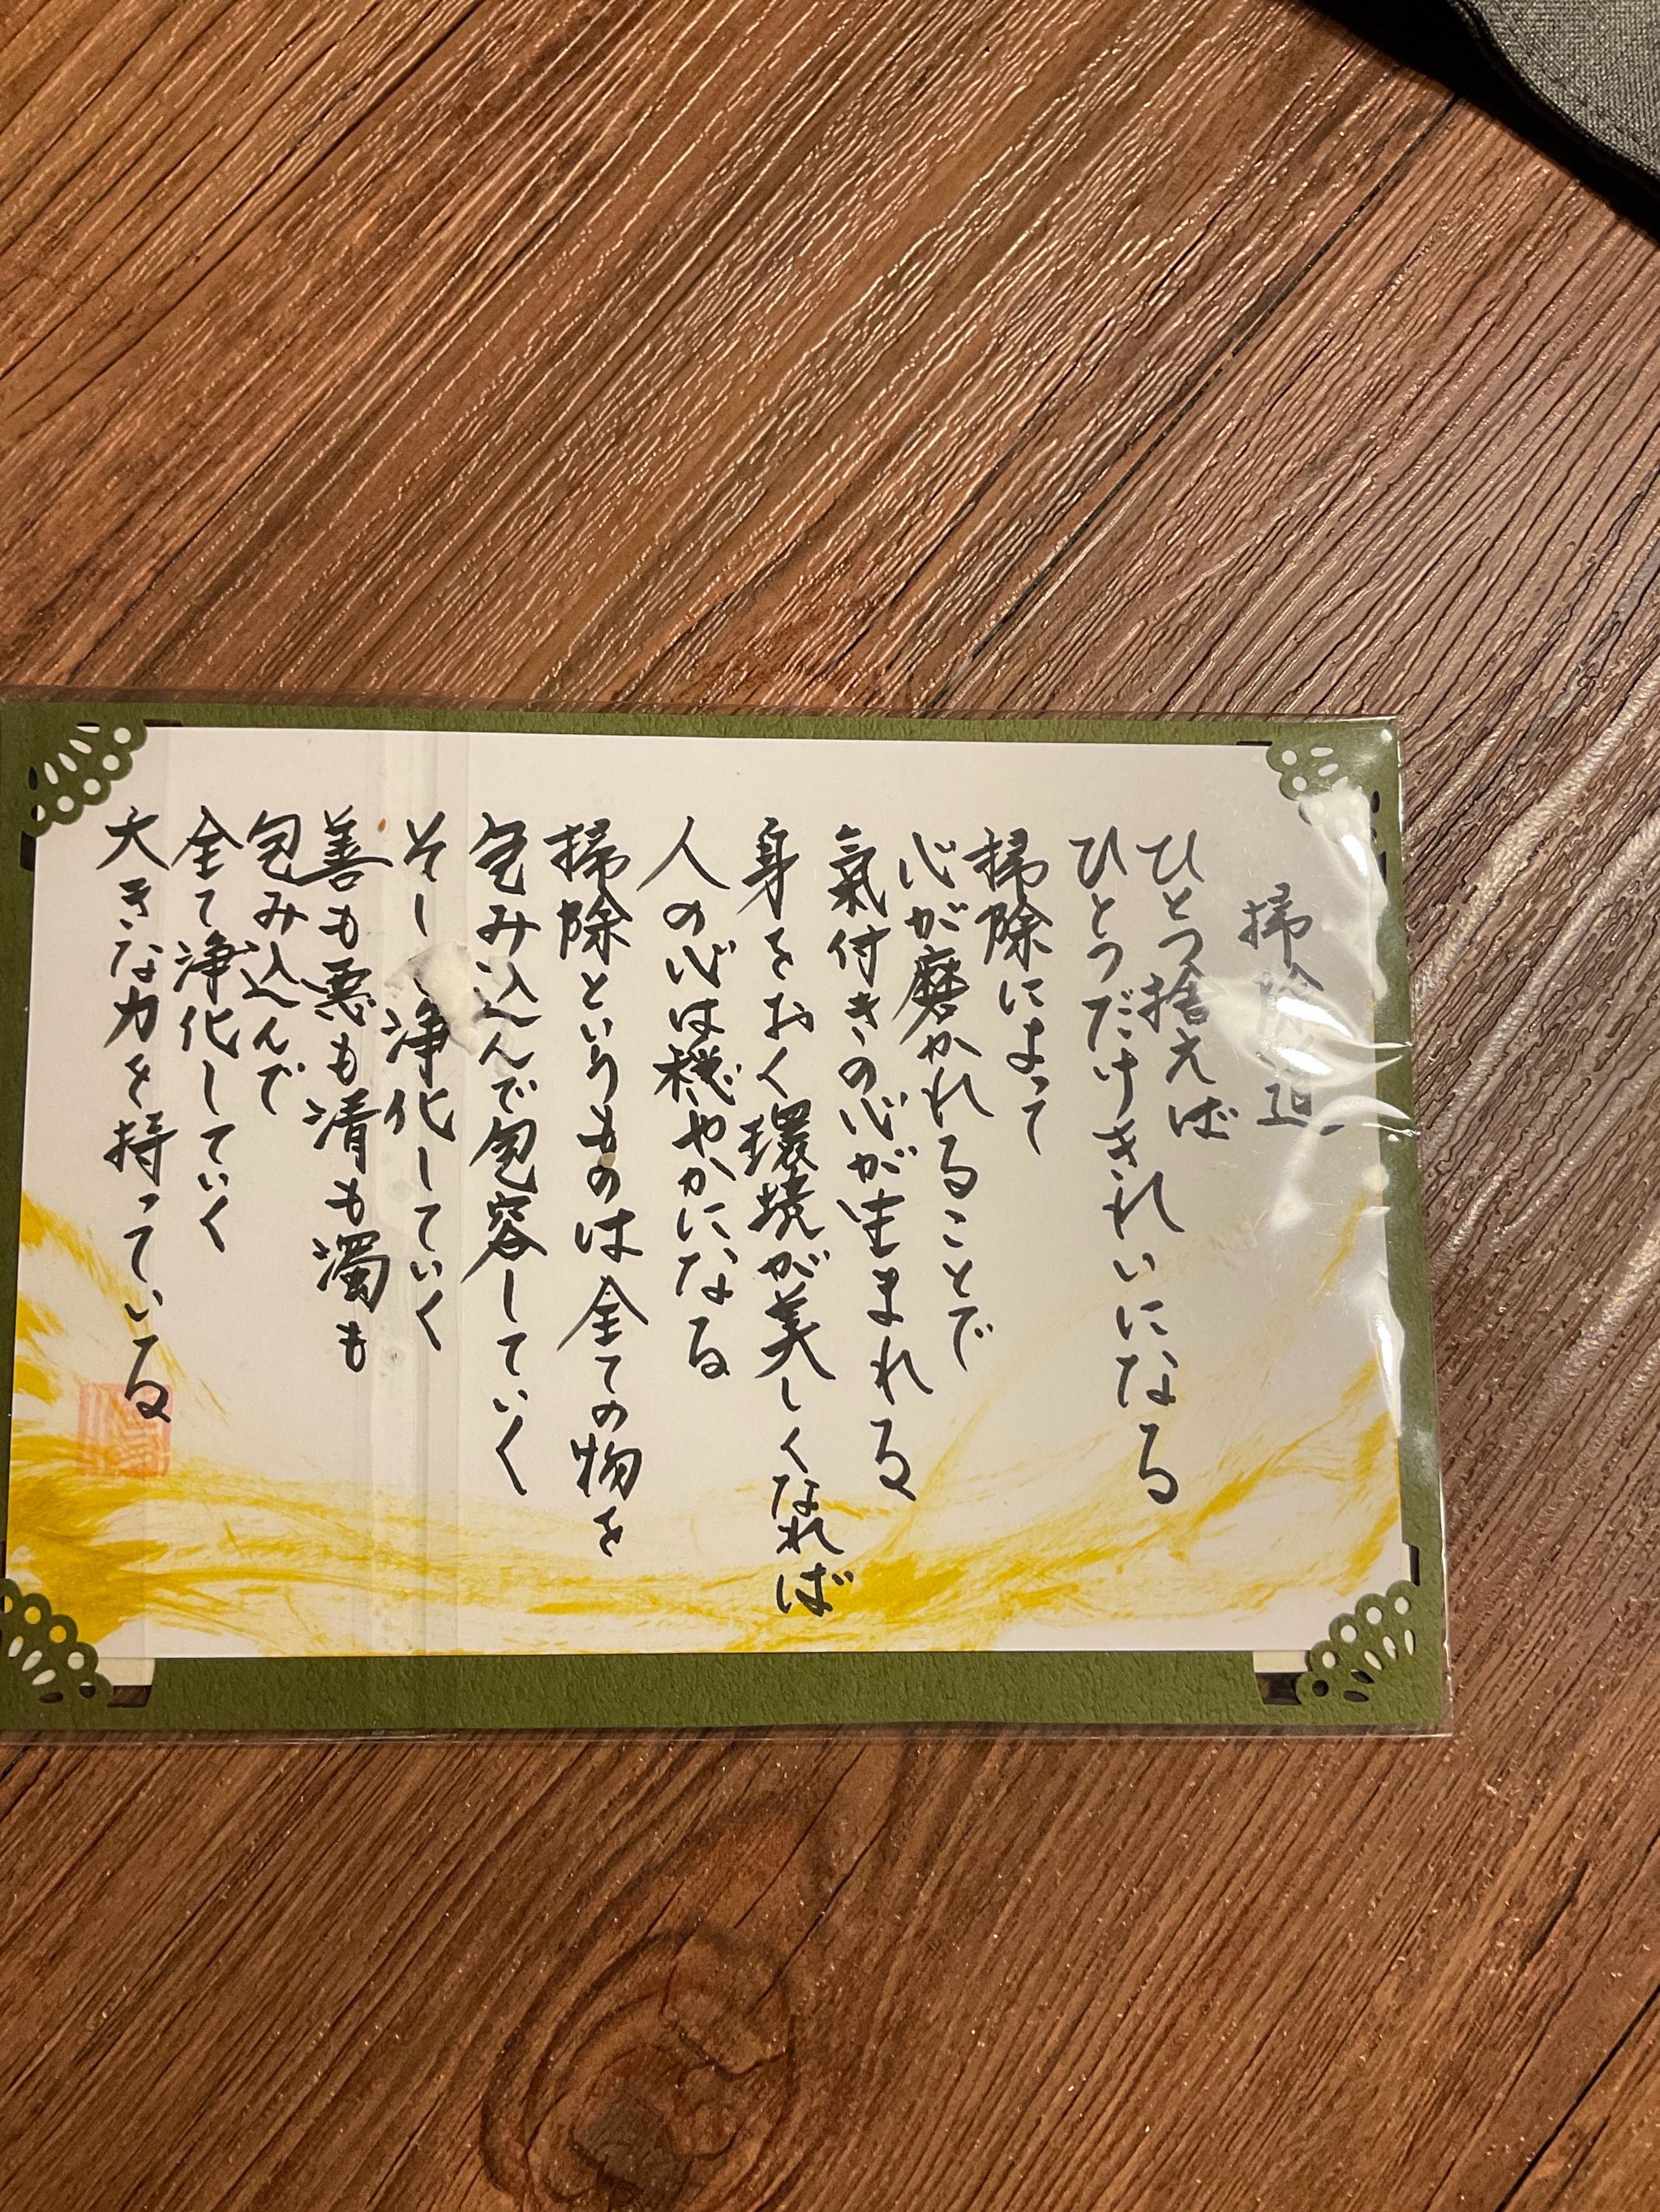 掃除道
ひとつ捨えば
ひとつだけきれいになる
掃除によって
心が磨かれることで
氣付きの心が生まれる
身をおく環境が美しくなれば
人の心は穏やかになる
掃除というものは全ての物を
包み込んで包容していく
そして浄化していく
善も悪も清も濁も
包み込んで
全て浄化していく
大きな力を持っている